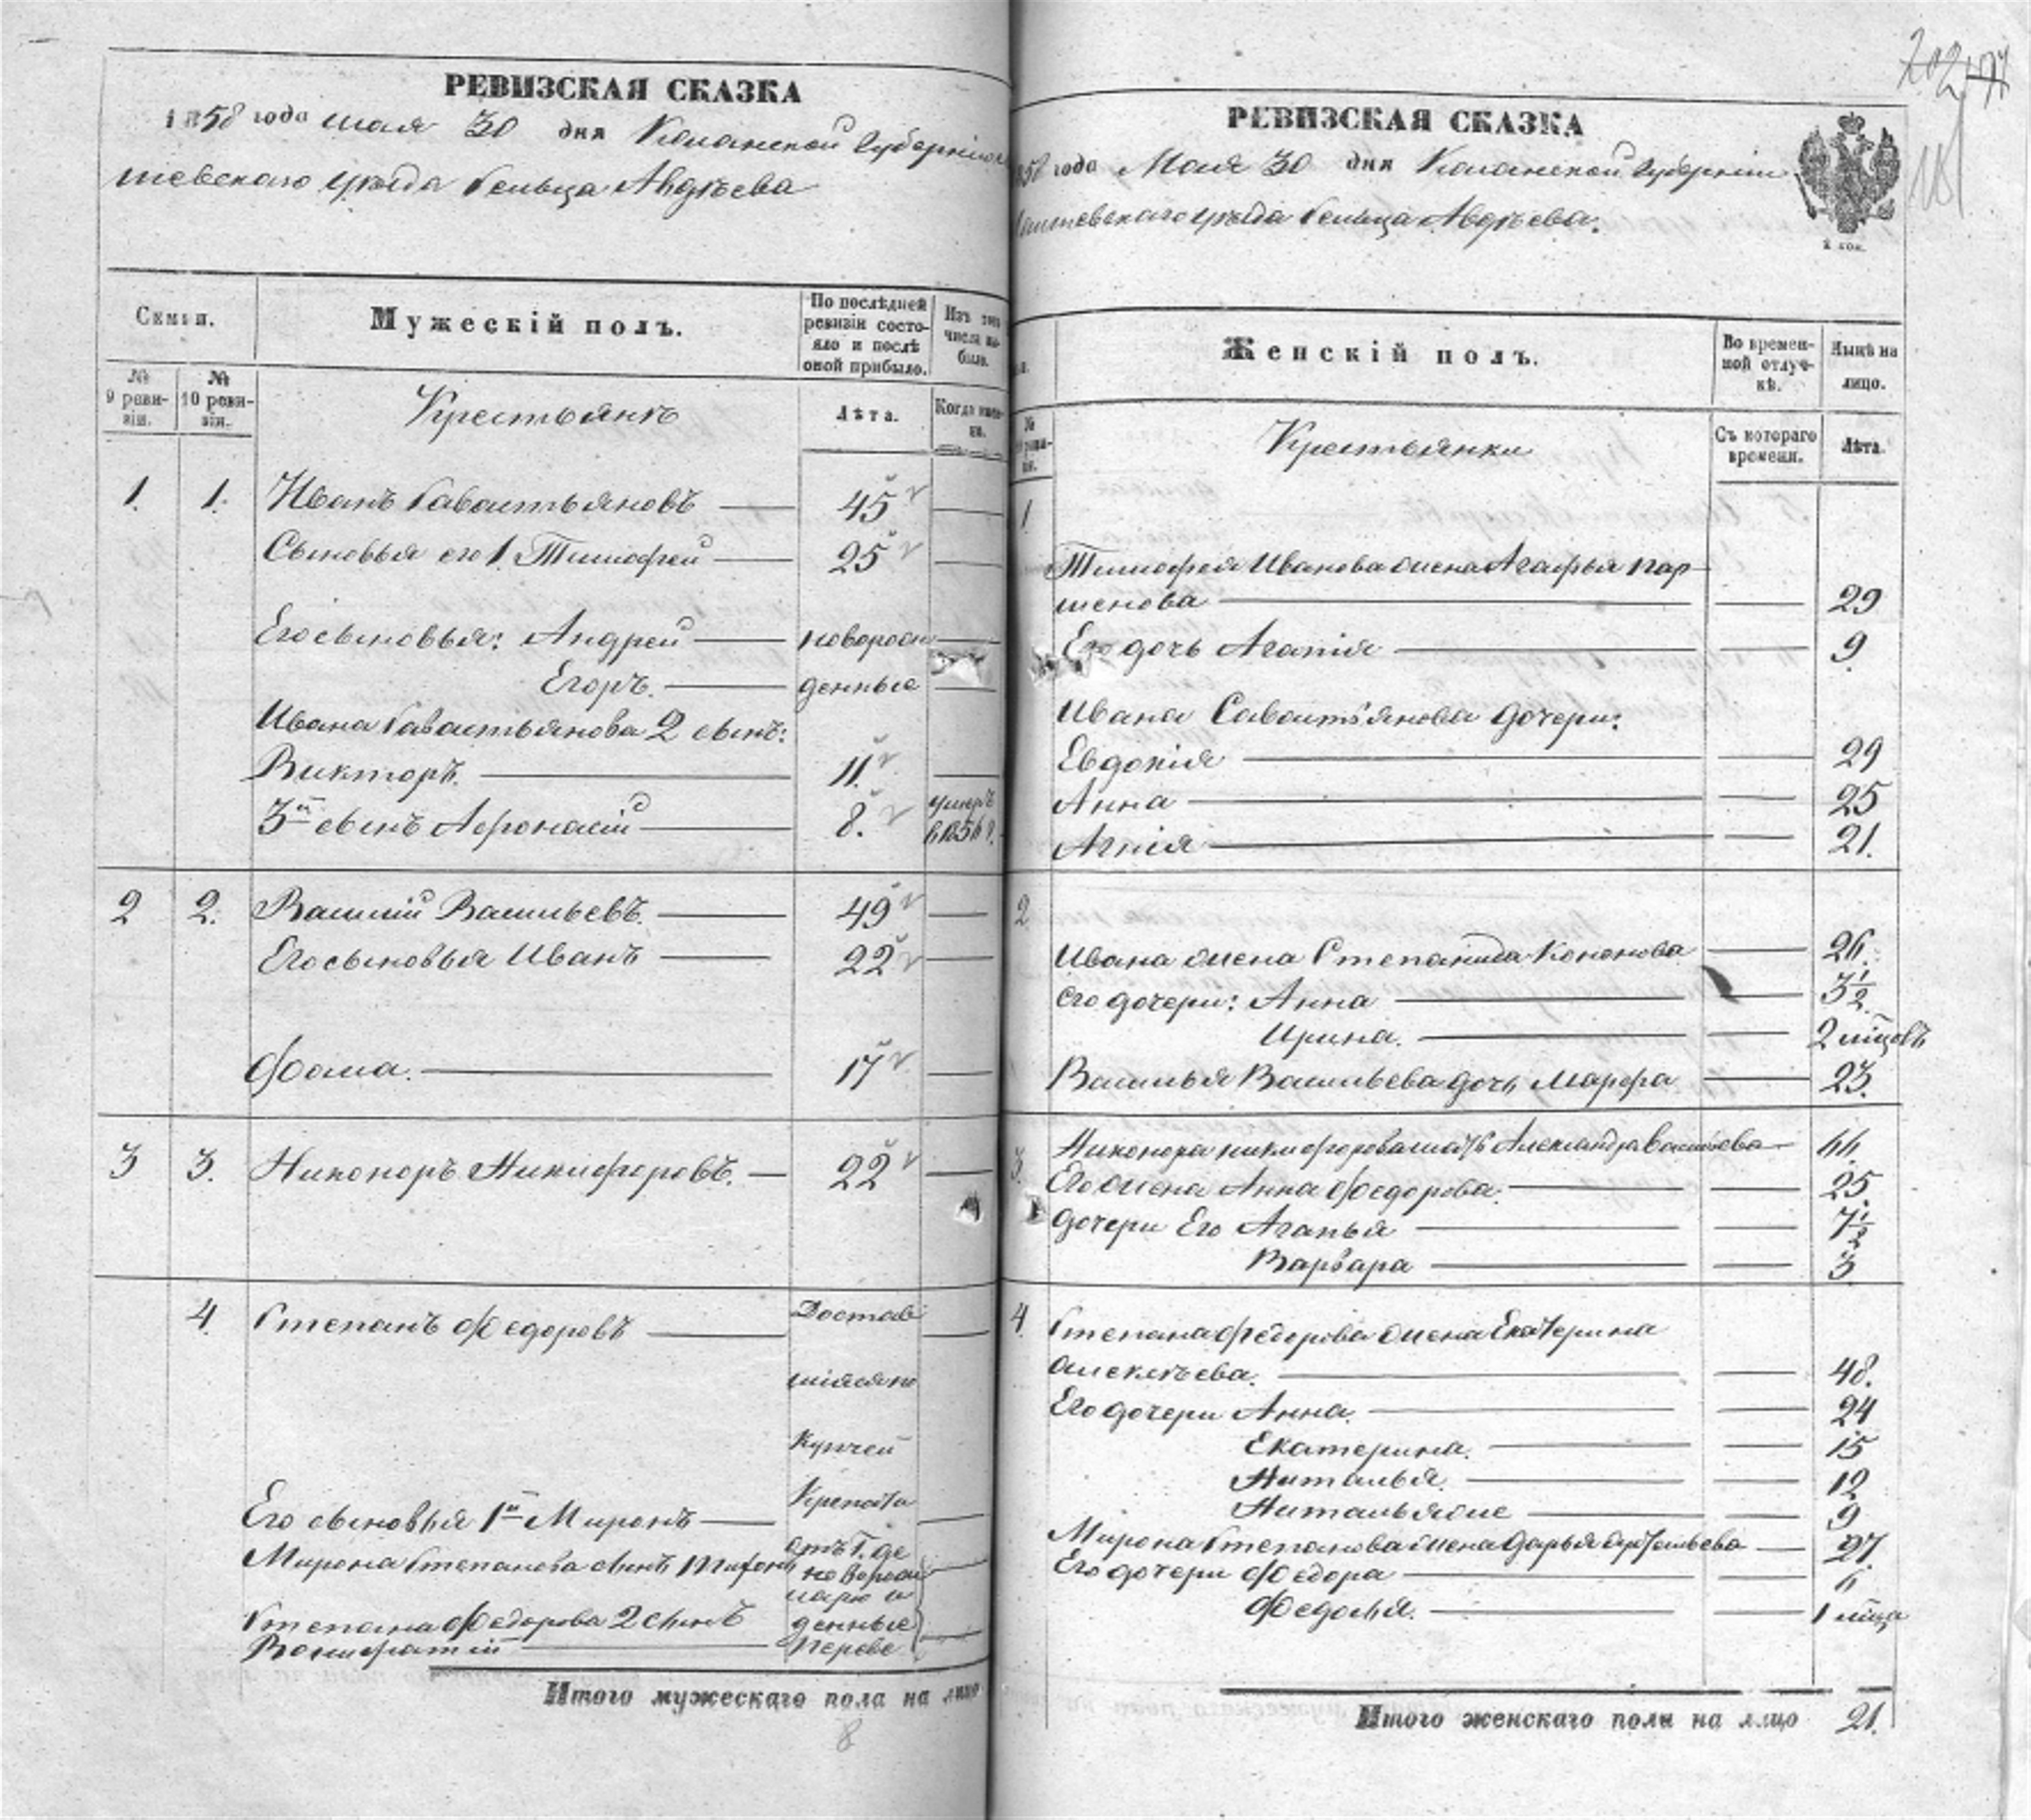 РЕВИЗСКАЯ СКАЗКА
1858 года мая 30 дня Казанской Губерніи
шевскаго уѣзда Сельца Авдѣева
Семьи.
Мужескій полъ.
По послѣдней ревизіи состояло и послѣ оной прибыло.
Изъ того числа выбыло.
№ 9 ревизіи.
№ 10 ревизіи.
Крестьянъ
Лѣта.
Когда именно.
1. 1. Иванъ Саваатьяновъ 45
Сыновья его 1. Тимофей 25
Его сыновья: Андрей новорож
Егоръ. денные
Ивана Саваатьянова 2 сынъ:
Викторъ. 11.
3й сынъ Афонасій 8. умеръ в 1856 г.
2 2. Василій Васильевъ. 49
Его сыновья Иванъ 22
Фома. 17
3 3. Никоноръ Никифоровъ. 22
4. Степанъ Федоровъ Достав
шіяся по
Купчей
Крепости
Его сыновья 1й Миронъ
отъ Г. де
Мирона Степанова сынъ новорож
Степана Федорова 2 сынъ денные
Вонифатій
Итого мужескаго пола на лицо
8
РЕВИЗСКАЯ СКАЗКА
858 года Мая 30 дня Казанской Губерніи
Лаишевскаго уѣзда Сельца Авдѣева.
2 коп.
Женскій полъ.
Во временной отлучкѣ.
Нынѣ на лицо.
Крестьянки
Съ котораго времени.
Лѣта.
1
Тимофея Иванова жена Агафья Пар
шенова 29
Его дочь Агапія 9
Ивана Саваатьянова дочери:
Евдокія 29
Анна 25
Агнія 21.
2
Ивана жена Степанида Кононова 26.
его дочери: Анна 3½
Ирина. 2 мѣсцовъ
Василья Васильева дочь Марфа 23.
3. Никонора Никифорова мать Александра Васильева 44
Его жена Анна Федорова. 25
дочери Его Агапья 7½
Варвара 3
4. Степана Федорова жена Екатерина
Алексѣева. 48.
Его дочери Анна. 24
Екатерина. 15
Наталья. 12
Наталья же 9
Мирона Степанова жена Дарья 27
Его дочери Федора 6
Федосья. 1 мѣсца
Итого женскаго пола на лицо 21.